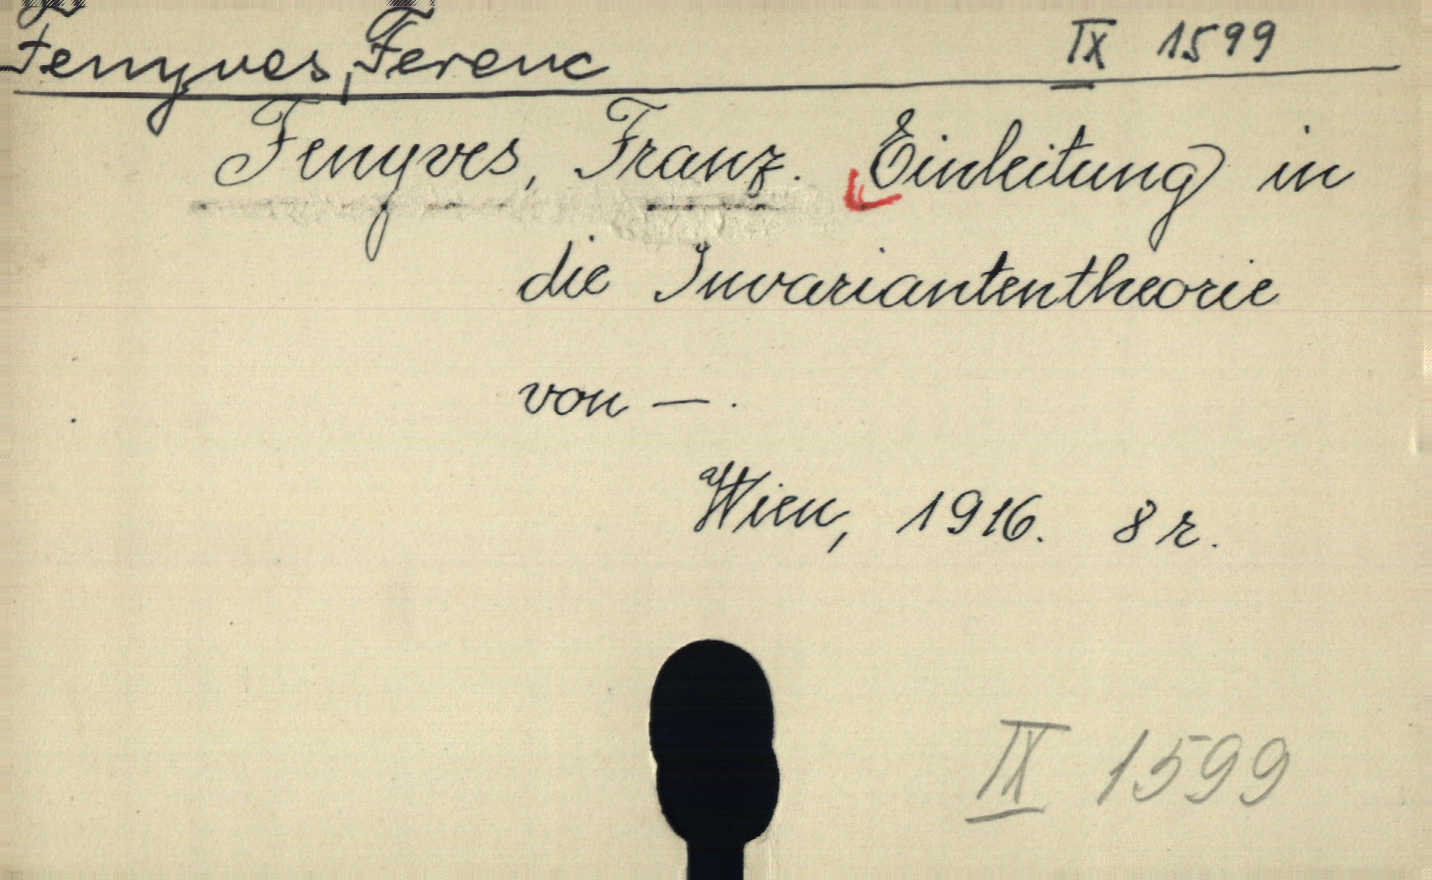 Fenyves, Ferenc IX 1599
Fenyves, Franz. Einleitung in
die Invariantentheorie
von — .
Wien, 1916. 8 r.
IX 1599